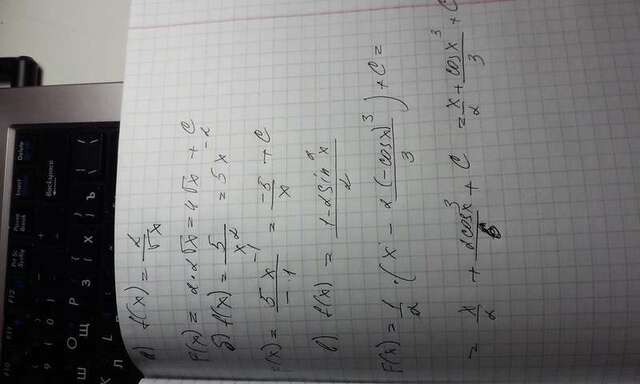 F10 F11 F12 Prt Sc SysRq Pause Break Insert Delete
Backspace
Ш О Р З Х Ъ
а) f(x) = 2/√x
F(x) = 2·2√x = 4√x + C
б) f(x) = 5/x² = 5x⁻²
F(x) = 5x⁻¹/-1 = -5/x + C
в) f(x) = 1-2sin²x/2
F(x) = 1/2 · (x - 2(-cosx)³/3) + C =
= x/2 + 2cosx³/6 + C = x/2 + cosx³/3 + C